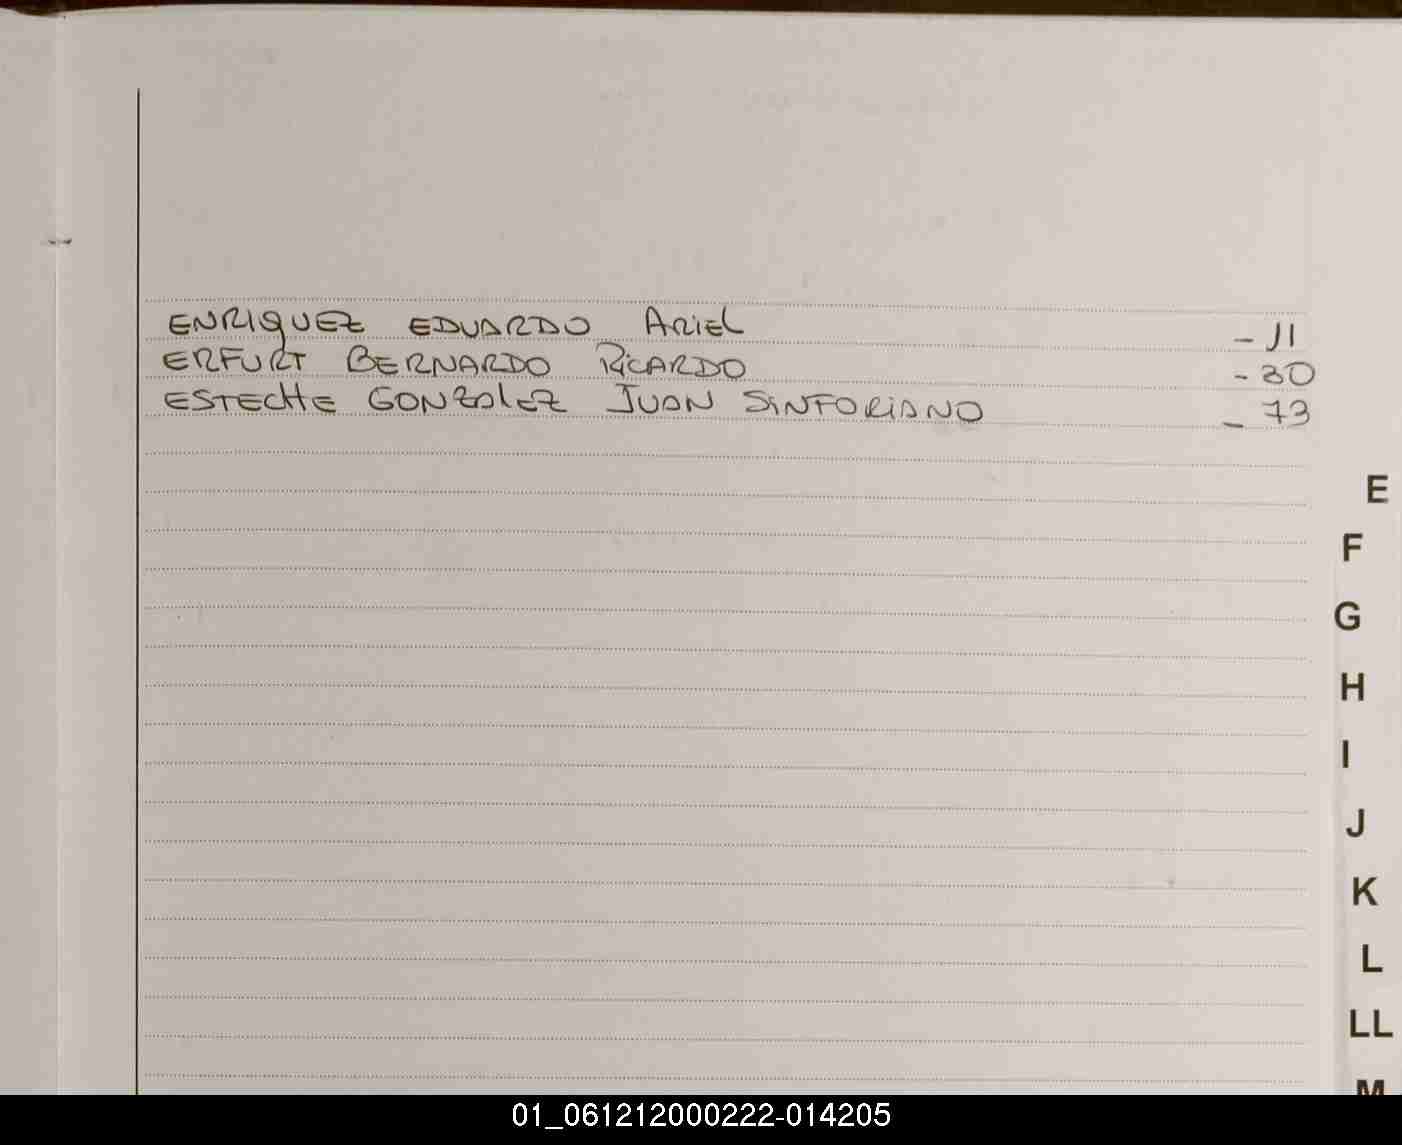 ENRIQUEZ EDUARDO ARIEL - 11
ERFURT BERNARDO RICARDO - 30
ESTECHE GONZALEZ JUAN SINFORIANO - 73
E
F
G
H
I
J
K
L
LL
M
01_061212000222-014205